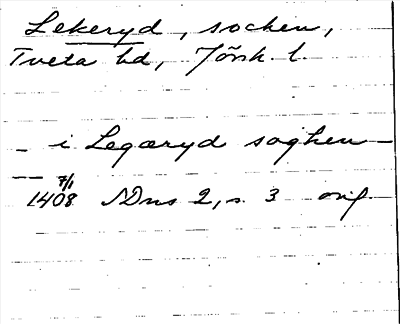 Lekeryd, socken,
Tveta hd, Jönk. l.
– i Legæryd soghen –
– – 7/1
1408 SDns 2, s. 3 orig.